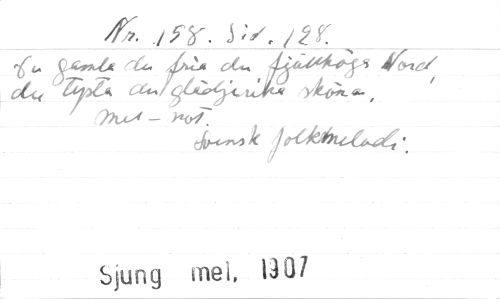 Nr. 158. Sid. 128.
Du gamla du fria du fjällhöga Nord,
du tysta du glädjerika sköna,
mel-not.
Svensk folkmelodi.
Sjung mel. 1907